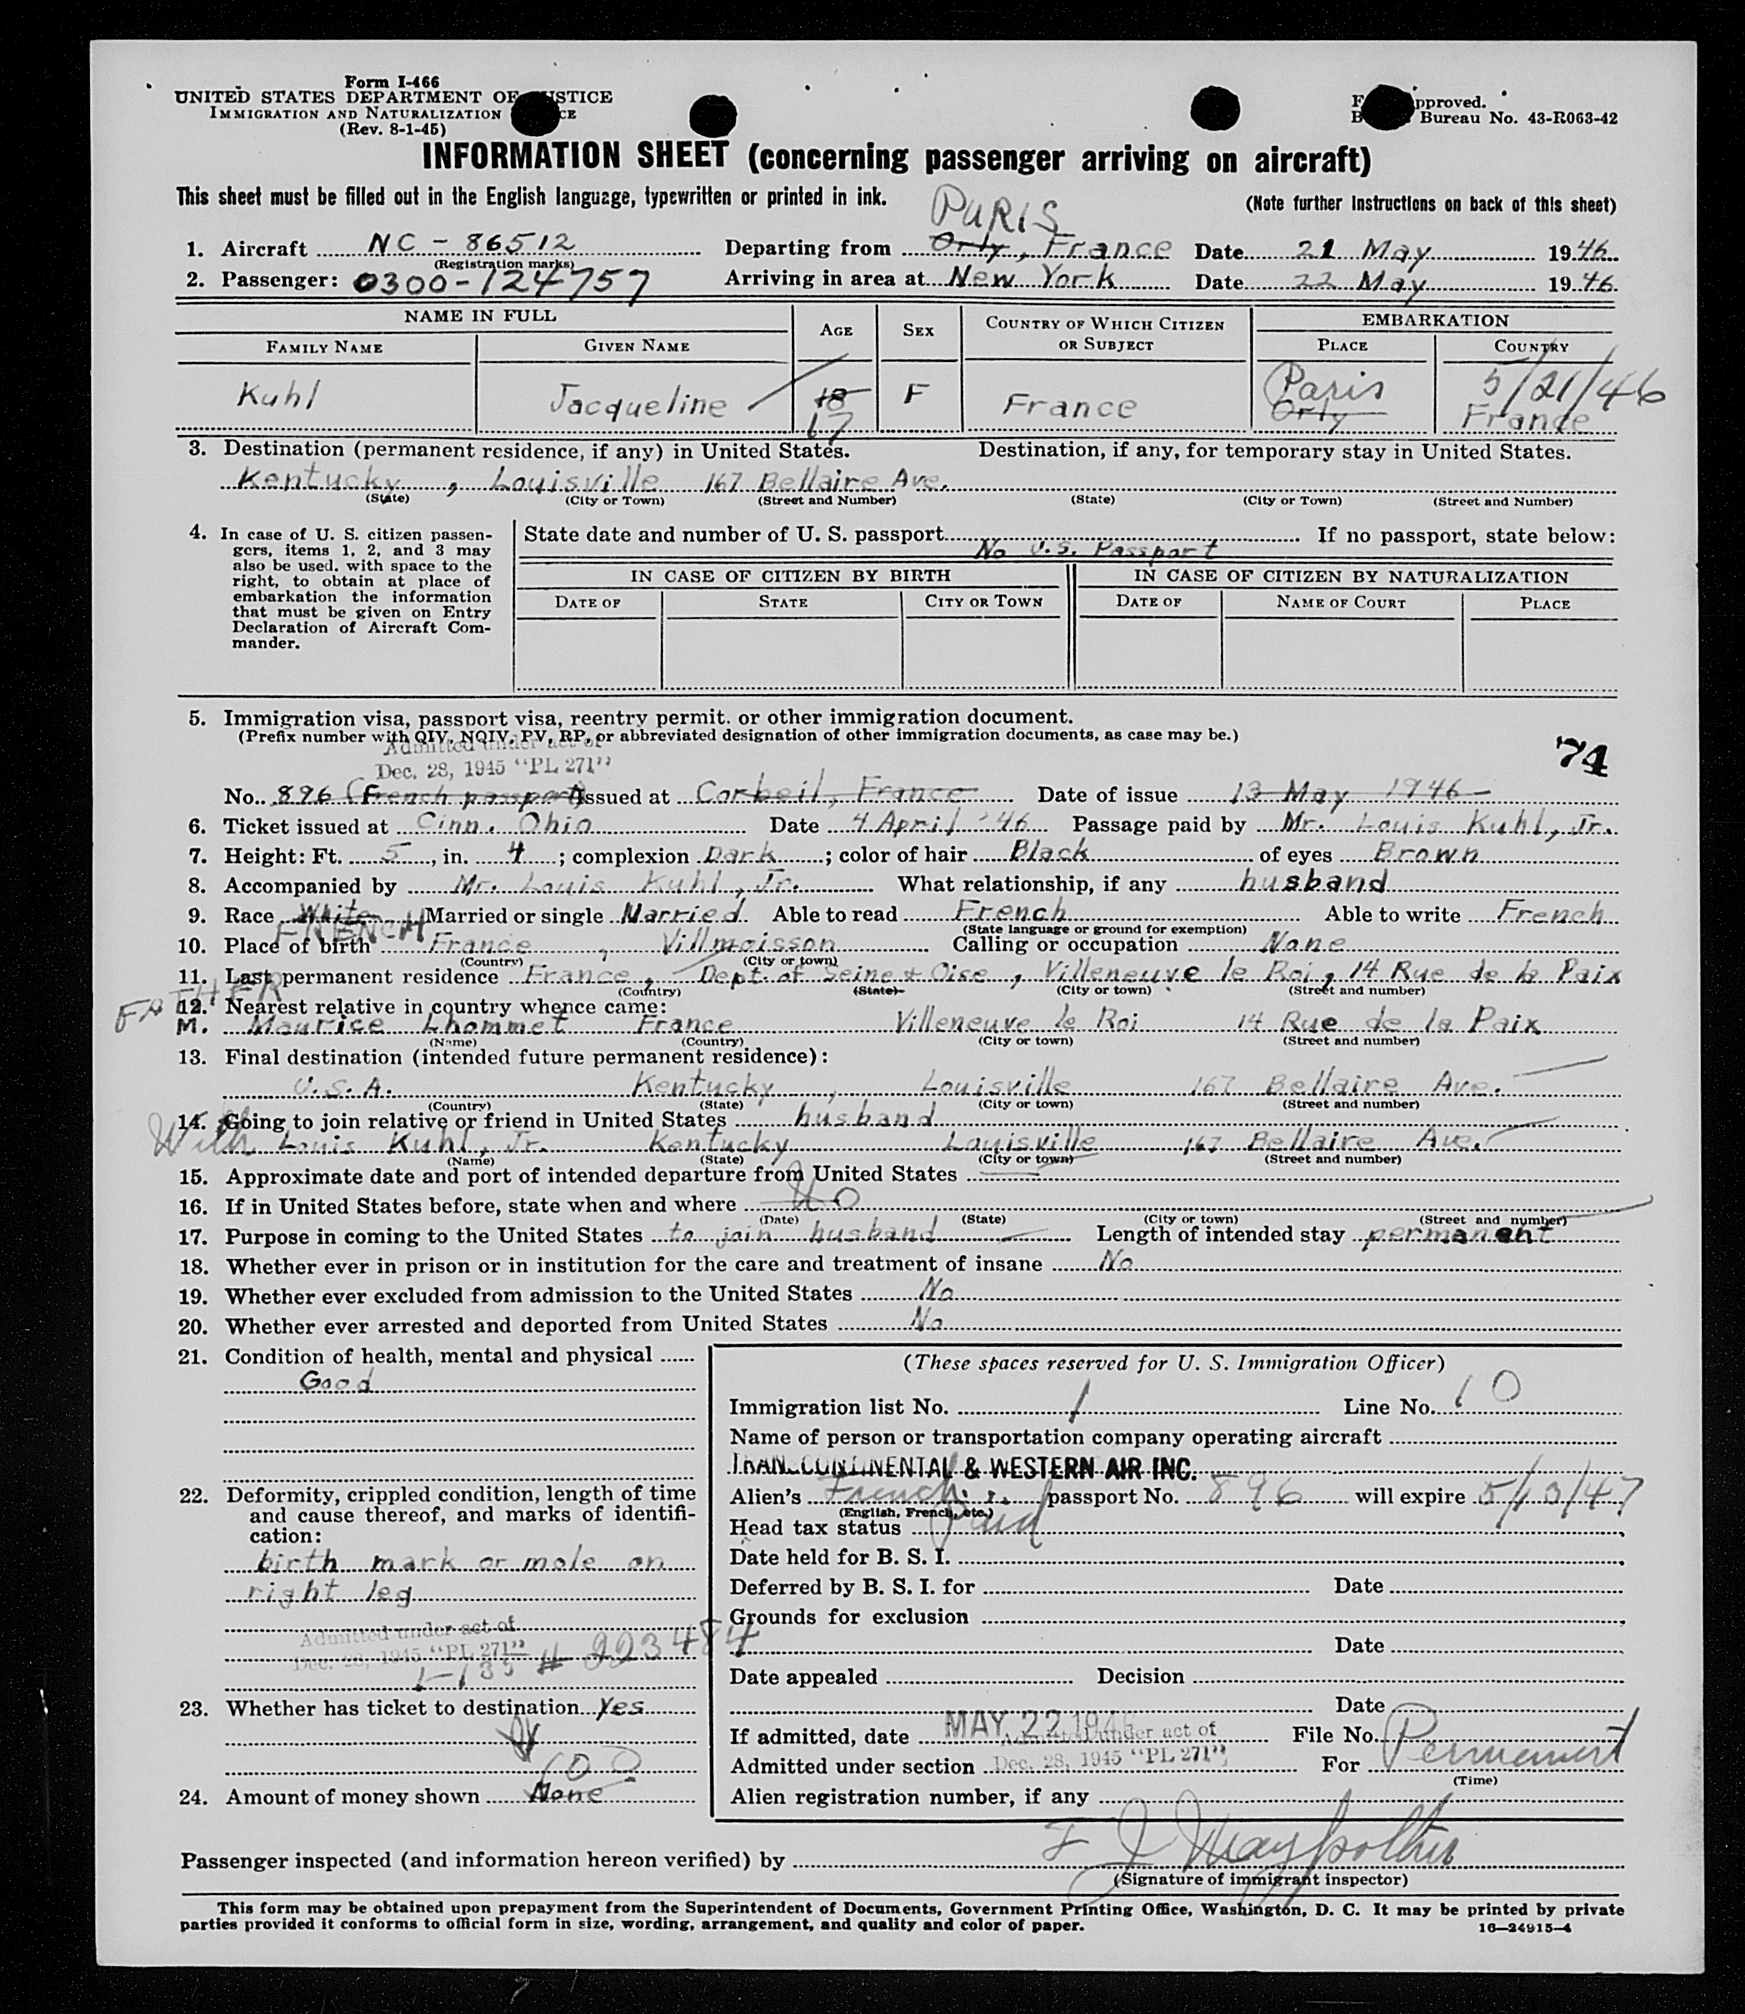 Form I-466
UNITED STATES DEPARTMENT OF JUSTICE
IMMIGRATION AND NATURALIZATION SERVICE
(Rev. 8-1-45)
Form approved.
Budget Bureau No. 43-R063-42
INFORMATION SHEET (concerning passenger arriving on aircraft)
This sheet must be filled out in the English language, typewritten or printed in ink.
(Note further instructions on back of this sheet)
PARIS
1. Aircraft NC-86512 Departing from Orly, France Date 21 May 1946
(Registration marks)
2. Passenger: 0300-124757 Arriving in area at New York Date 22 May 1946
NAME IN FULL AGE SEX COUNTRY OF WHICH CITIZEN OR SUBJECT EMBARKATION
FAMILY NAME GIVEN NAME PLACE COUNTRY
Kuhl Jacqueline 18 F France Paris 5/21/46
17 Orly France
3. Destination (permanent residence, if any) in United States. Destination, if any, for temporary stay in United States.
Kentucky, Louisville 167 Bellaire Ave.
(State) (City or Town) (Street and Number) (State) (City or Town) (Street and Number)
4. In case of U. S. citizen passengers, items 1, 2, and 3 may also be used, with space to the right, to obtain at place of embarkation the information that must be given on Entry Declaration of Aircraft Commander.
State date and number of U. S. passport If no passport, state below:
No U.S. Passport
IN CASE OF CITIZEN BY BIRTH IN CASE OF CITIZEN BY NATURALIZATION
DATE OF STATE CITY OR TOWN DATE OF NAME OF COURT PLACE
5. Immigration visa, passport visa, reentry permit, or other immigration document.
(Prefix number with QIV, NQIV, PV, RP, or abbreviated designation of other immigration documents, as case may be.)
Admitted under act of
Dec. 28, 1945 "PL 271"
74
No. 896 (French passport) Issued at Corbeil, France Date of issue 13 May 1946
6. Ticket issued at Cinn. Ohio Date 4 April '46 Passage paid by Mr. Louis Kuhl, Jr.
7. Height: Ft. 5, in. 4; complexion Dark; color of hair Black of eyes Brown
8. Accompanied by Mr. Louis Kuhl, Jr. What relationship, if any husband
9. Race White Married or single Married Able to read French Able to write French
FRENCH
(State language or ground for exemption)
10. Place of birth France, Villmoisson Calling or occupation None
(Country) (City or town)
11. Last permanent residence France, Dept. of Seine & Oise, Villeneuve le Roi, 14 Rue de la Paix
(Country) (State) (City or town) (Street and number)
FATHER
12. Nearest relative in country whence came:
M. Maurice Lhommet France Villeneuve le Roi 14 Rue de la Paix
(Name) (Country) (City or town) (Street and number)
13. Final destination (intended future permanent residence):
U.S.A. Kentucky, Louisville 167 Bellaire Ave.
(Country) (State) (City or town) (Street and number)
14. Going to join relative or friend in United States husband
With Louis Kuhl, Jr. Kentucky Louisville 167 Bellaire Ave.
(Name) (State) (City or town) (Street and number)
15. Approximate date and port of intended departure from United States
16. If in United States before, state when and where No
(Date) (State) (City or town) (Street and number)
17. Purpose in coming to the United States to join husband Length of intended stay permanent
18. Whether ever in prison or in institution for the care and treatment of insane No
19. Whether ever excluded from admission to the United States No
20. Whether ever arrested and deported from United States No
21. Condition of health, mental and physical
Good
22. Deformity, crippled condition, length of time and cause thereof, and marks of identification:
birth mark or mole on
right leg
Admitted under act of
Dec. 28, 1945 "PL 271"
I-135 # 223484
23. Whether has ticket to destination Yes
100
24. Amount of money shown None
(These spaces reserved for U. S. Immigration Officer)
Immigration list No. 1 Line No. 10
Name of person or transportation company operating aircraft
TRANSCONTINENTAL & WESTERN AIR INC.
Alien's French passport No. 896 will expire 5/13/47
(English, French, etc.)
Head tax status Paid
Date held for B. S. I.
Deferred by B. S. I. for Date
Grounds for exclusion
Date
Date appealed Decision
Date
If admitted, date MAY 22 1946 File No.
Admitted under act of
Admitted under section Dec. 28, 1945 "PL 271" For Permanent
(Time)
Alien registration number, if any
Passenger inspected (and information hereon verified) by
(Signature of immigrant inspector)
This form may be obtained upon prepayment from the Superintendent of Documents, Government Printing Office, Washington, D. C. It may be printed by private
parties provided it conforms to official form in size, wording, arrangement, and quality and color of paper.
16—24915-4